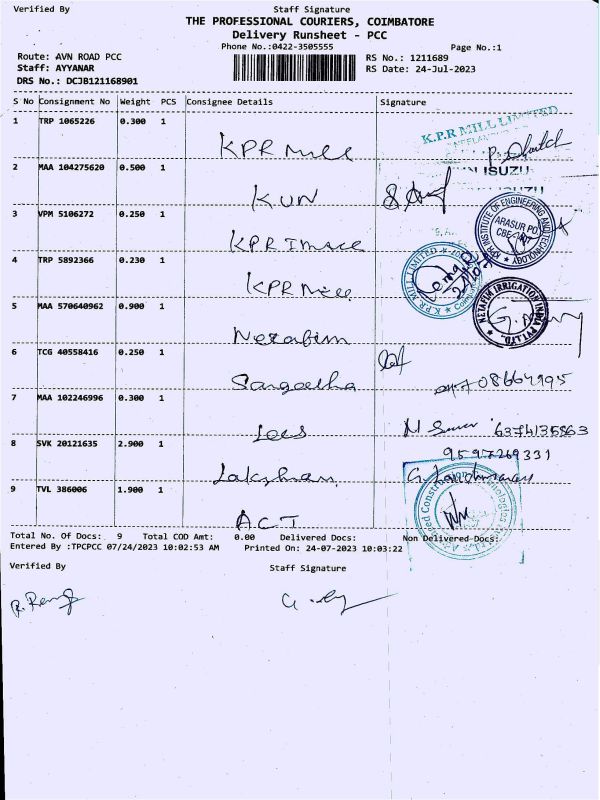 Verified By Staff Signature
THE PROFESSIONAL COURIERS, COIMBATORE
Delivery Runsheet - PCC
Phone No.:0422-3505555 Page No.:1
Route: AVN ROAD PCC RS No.: 1211689
Staff: AYYANAR RS Date: 24-Jul-2023
DRS No.: DCJB121168901
S No Consignment No Weight PCS Consignee Details Signature
1 TRP 1065226 0.300 1 KPR Mill K.P.R MILL LIMITED
2 MAA 104275620 0.500 1 KUN ISUZU
3 VPM 5106272 0.250 1 KPR KPR INSTITUTE OF ENGINEERING AND TECHNOLOGY ARASUR PO
4 TRP 5892366 0.230 1 KPR Mill K.P.R MILL LIMITED
5 MAA 570640962 0.900 1 Netafim NETAFIM IRRIGATION INDIA PVT LTD
6 TCG 40558416 0.250 1 Sangeetha
7 MAA 102246996 0.300 1 6374135863
8 SVK 20121635 2.900 1 9597269331
9 TVL 386006 1.900 1 ACT
Total No. Of Docs: 9 Total COD Amt: 0.00 Delivered Docs: Non Delivered Docs:
Entered By :TPCPCC 07/24/2023 10:02:53 AM Printed On: 24-07-2023 10:03:22
Verified By Staff Signature